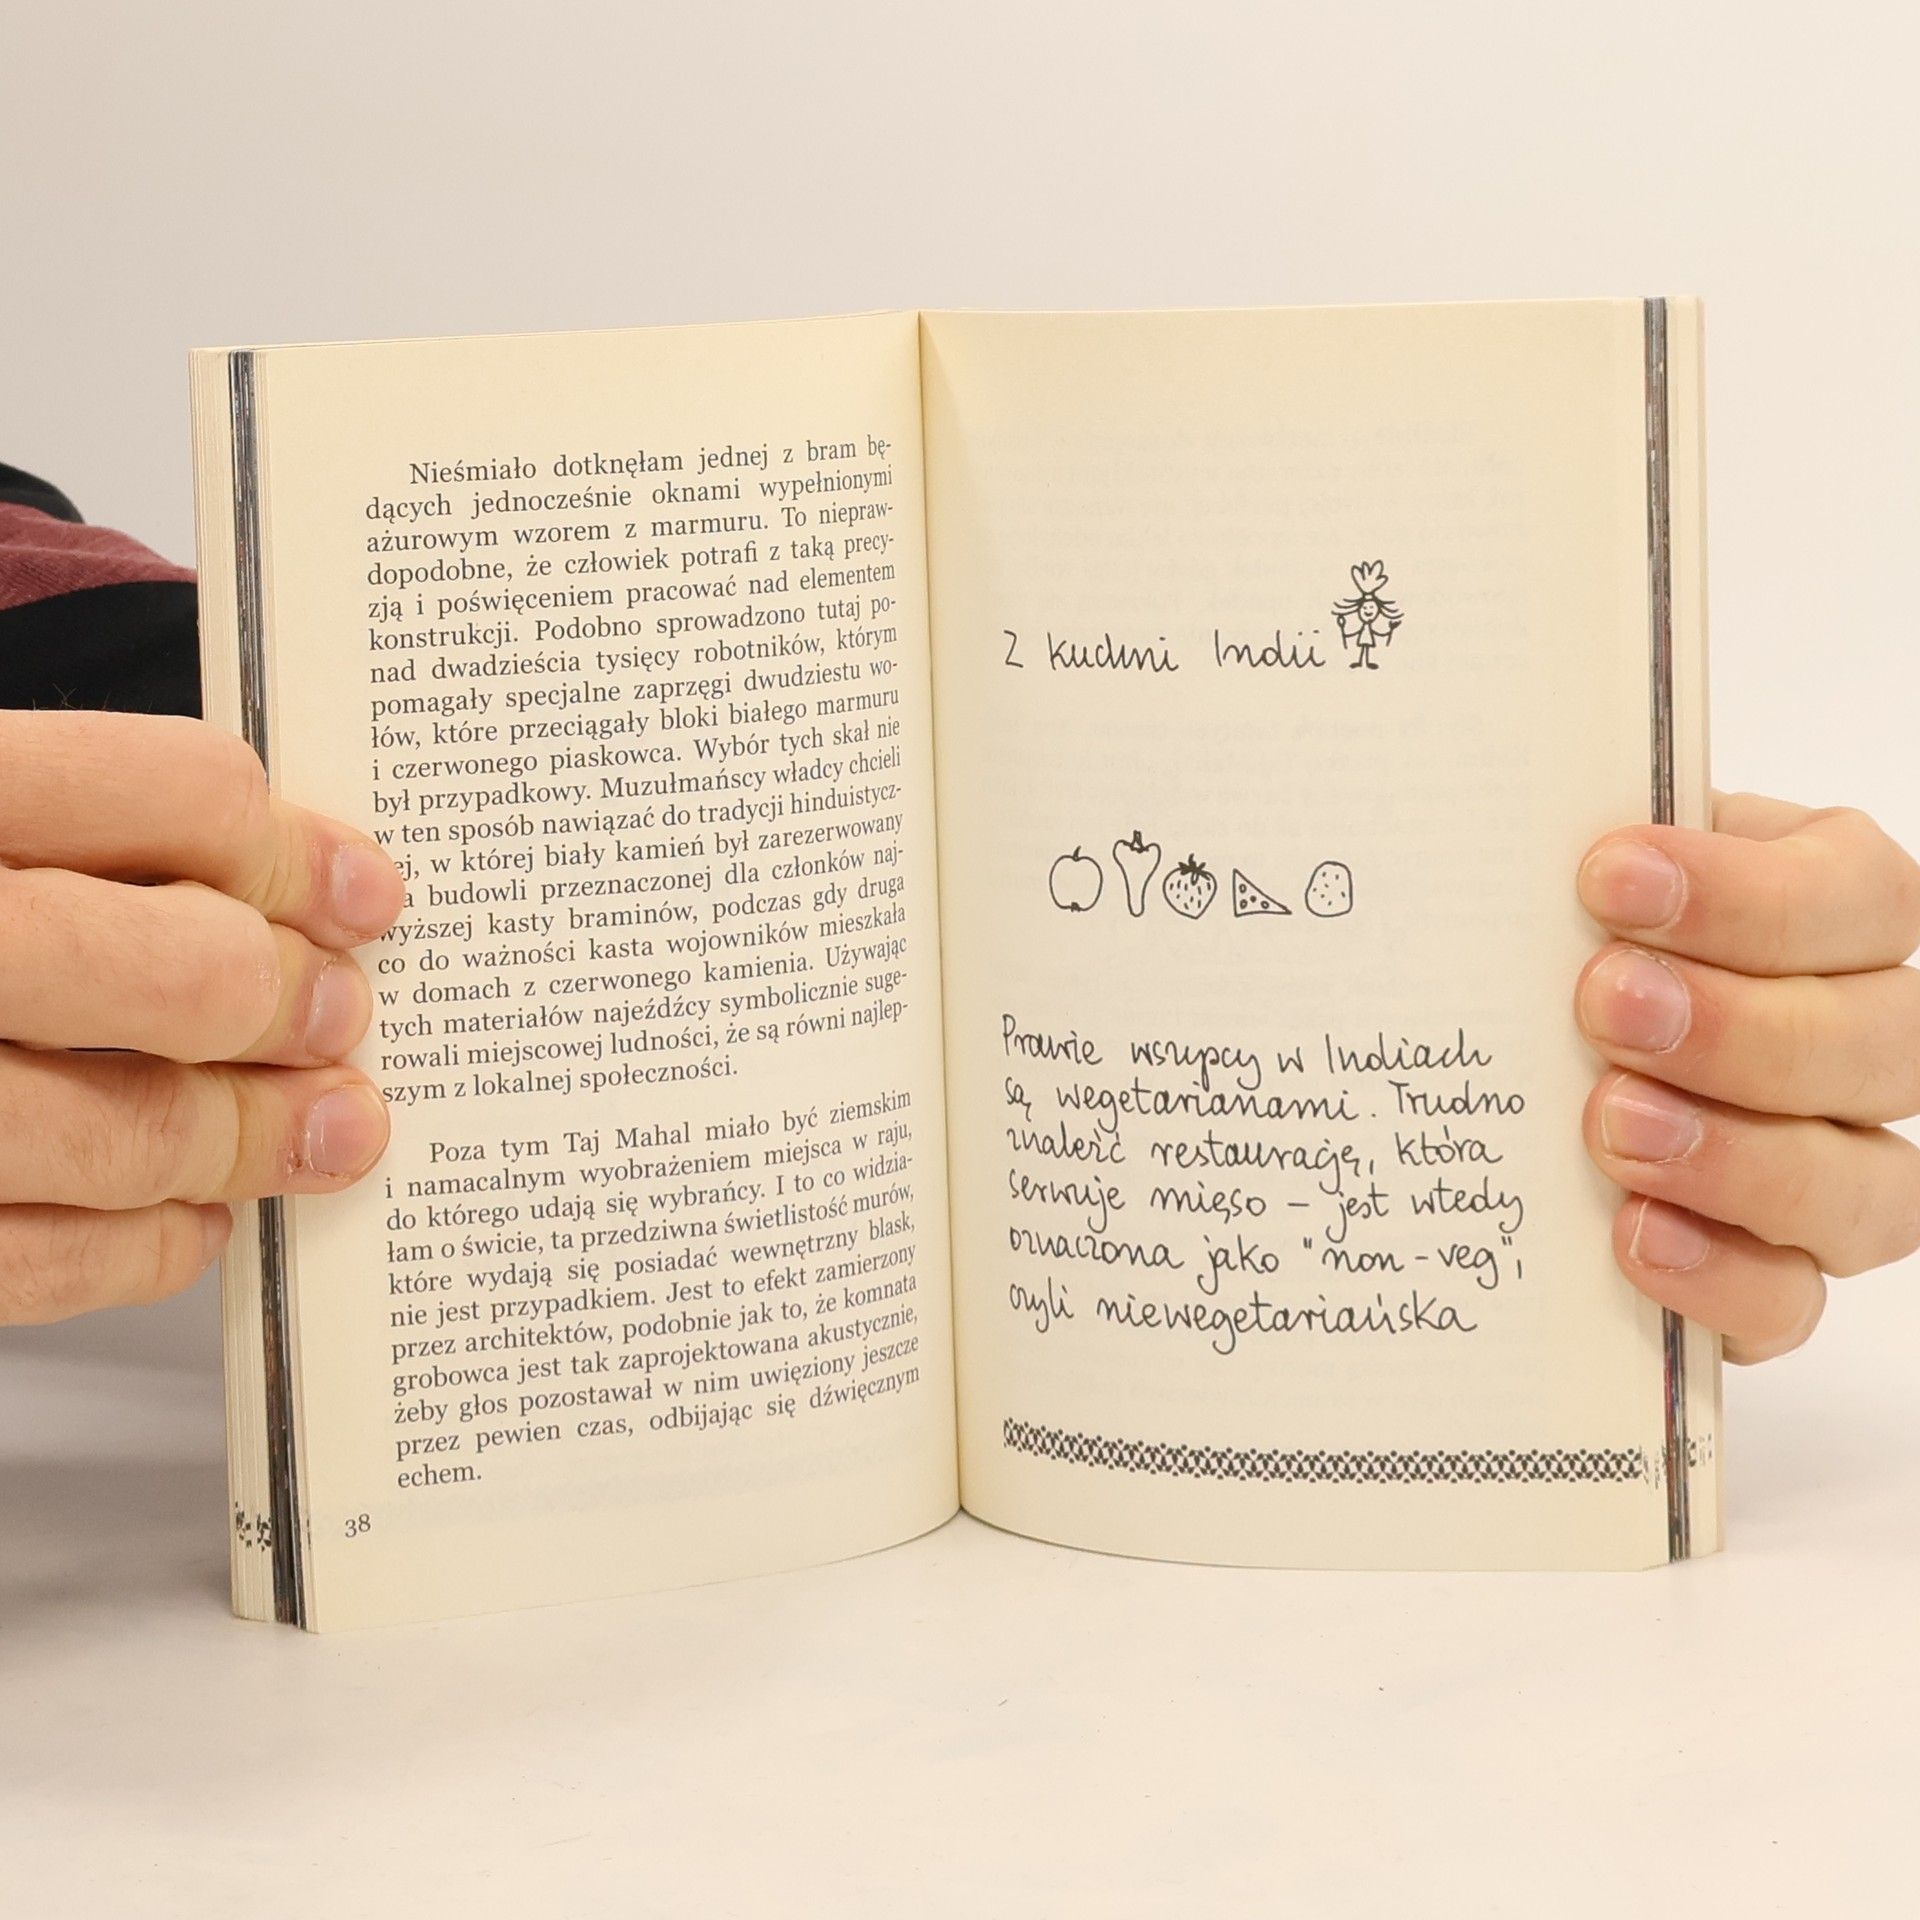 Nieśmiało dotknęłam jednej z bram bę-
dących jednocześnie oknami wypełnionymi
ażurowym wzorem z marmuru. To niepraw-
dopodobne, że człowiek potrafi z taką precy-
zją i poświęceniem pracować nad elementem
konstrukcji. Podobno sprowadzono tutaj po-
nad dwadzieścia tysięcy robotników, którym
pomagały specjalne zaprzęgi dwudziestu wo-
łów, które przeciągały bloki białego marmuru
i czerwonego piaskowca. Wybór tych skał nie
był przypadkowy. Muzułmańscy władcy chcieli
w ten sposób nawiązać do tradycji hinduistycz-
ej, w której biały kamień był zarezerwowany
a budowli przeznaczonej dla członków naj-
wyższej kasty braminów, podczas gdy druga
co do ważności kasta wojowników mieszkała
w domach z czerwonego kamienia. Używając
tych materiałów najeźdźcy symbolicznie suge-
rowali miejscowej ludności, że są równi najlep-
szym z lokalnej społeczności.
Poza tym Taj Mahal miało być ziemskim
i namacalnym wyobrażeniem miejsca w raju,
do którego udają się wybrańcy. I to co widzia-
łam o świcie, ta przedziwna świetlistość murów,
które wydają się posiadać wewnętrzny blask,
nie jest przypadkiem. Jest to efekt zamierzony
przez architektów, podobnie jak to, że komnata
grobowca jest tak zaprojektowana akustycznie,
żeby głos pozostawał w nim uwięziony jeszcze
przez pewien czas, odbijając się dźwięcznym
echem.
38
Z kuchni Indii
Prawie wszyscy w Indiach
są wegetarianami. Trudno
znaleźć restaurację, która
serwuje mięso – jest wtedy
oznaczona jako "non-veg",
czyli niewegetariańska